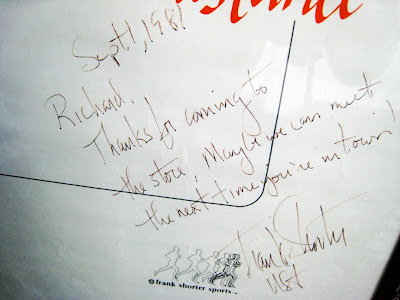 Sept 1, 1981
Richard,
Thanks for coming to
the store. Maybe we can meet
the next time you're in town!
Frank Shorter
© frank shorter sports